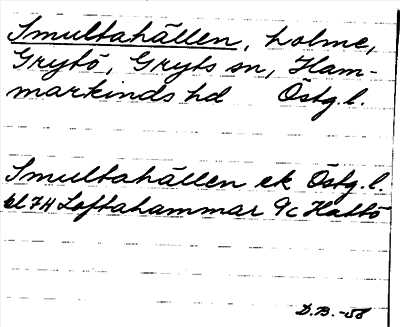 Smultahällen, holme,
Grytö, Gryts sn, Ham-
markinds hd Östg. l.
Smultahällen ek Östg. l.
bl 74 Loftahammar 9c Hattö
D.B. -58